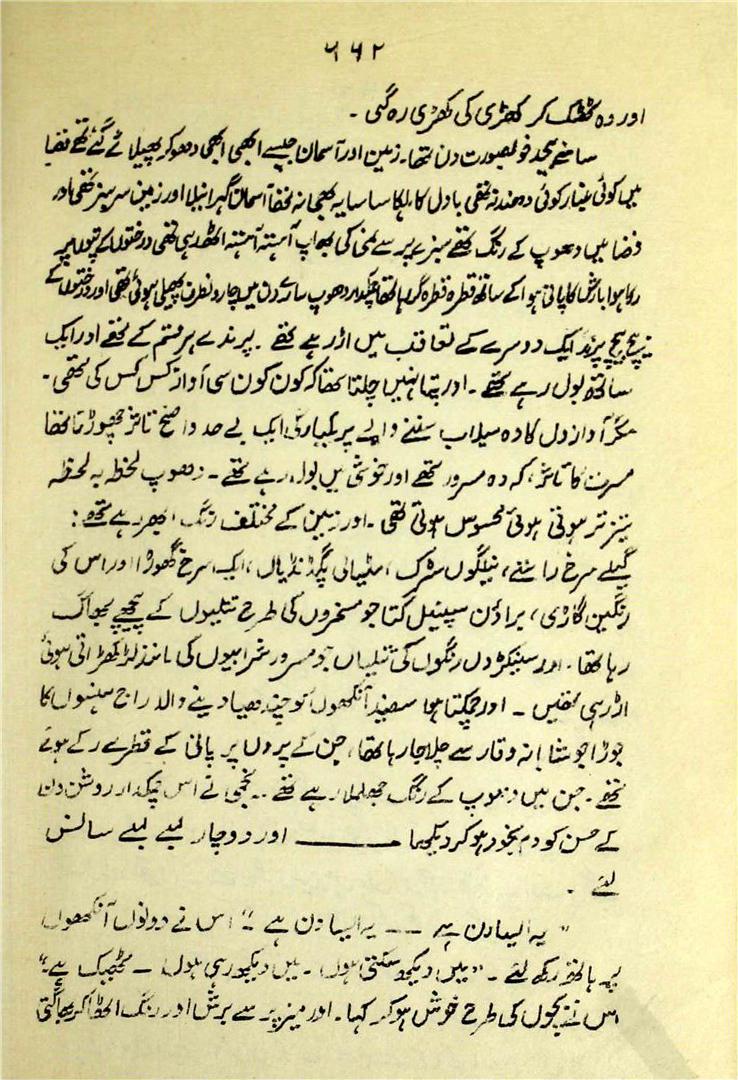 ۶۶۲
اور وہ ٹھٹک کر کھڑی کی کھڑی رہ گئی ۔
سامنے بیحد خوبصورت دن تھا۔ زمین اور آسمان جیسے ابھی ابھی دھو کر پھیلائے گئے تھے فضا
میں کوئی غبار کوئی دھند نہ تھی بادل کا ہلکا سا سایہ بھی نہ تھا آسمان گہرا نیلا اور زمین سرسبز تھی اور
فضا میں دھوپ کے رنگ تھے سبزے پر سے نمی کی بھاپ آہستہ آہستہ اٹھ رہی تھی درختوں کے پتوں پر
رکا ہوا بارش کا پانی ہوا کے ساتھ قطرہ قطرہ گر رہا تھا چمکدار دھوپ سارے دن میں چاروں طرف پھیلی ہوئی تھی اور درختوں کے
نیچے نیچے پرندے ایک دوسرے کے تعاقب میں اڑ رہے تھے ۔ پرندے ہر قسم کے تھے اور ایک
ساتھ بول رہے تھے ۔ اور پتا نہیں چلتا تھا کہ کون کون سی آواز کس کس کی تھی ۔
مگر آوازوں کا وہ سیلاب سننے والے پر یکبارگی ایک بے حد واضح تاثر چھوڑتا تھا
مسرت کا تاثر، کہ وہ مسرور تھے اور خوشی میں بول رہے تھے ۔ دھوپ لحظہ بہ لحظہ
تیز تر ہوتی ہوئی محسوس ہوتی تھی ۔ اور زمین کے مختلف رنگ ابھر رہے تھے :
گیلے سرخ راستے ، نیلگوں سڑک ، مٹیالی پگڈنڈیاں ، ایک سرخ گھوڑا اور اس کی
رنگین گاڑی ، براؤن سپینیل کتا جو مسخروں کی طرح تتلیوں کے پیچھے بھاگ
رہا تھا ۔ اور سینکڑوں رنگوں کی تتلیاں جو مسرور شرابیوں کی مانند لڑکھڑاتی ہوئی
اڑ رہی تھیں ۔ اور چمکتا ہوا سفید آنکھوں کو چندھیا دینے والا راج ہنسوں کا
جوڑا جو شاہانہ وقار سے چلا جا رہا تھا ، جن کے پروں پر پانی کے قطرے رکے ہوئے
تھے ۔ جن میں دھوپ کے رنگ جھلملا رہے تھے ۔ نجمی نے اس چمکدار روشن دن
کے حسن کو دم بخود ہو کر دیکھا ——— اور دو چار لمبے لمبے سانس
لئے ۔
" یہ ایسا دن ہے —— یہ ایسا دن ہے ۔" اس نے دونوں آنکھوں
پہ ہاتھ رکھ لئے ۔ "میں دیکھ سکتی ہوں ۔ میں دیکھ رہی ہوں — ٹھیک ہے ۔"
اس نے بچوں کی طرح خوش ہو کر کہا ۔ اور میز پر سے برش اور رنگ اٹھا کر بھاگتی